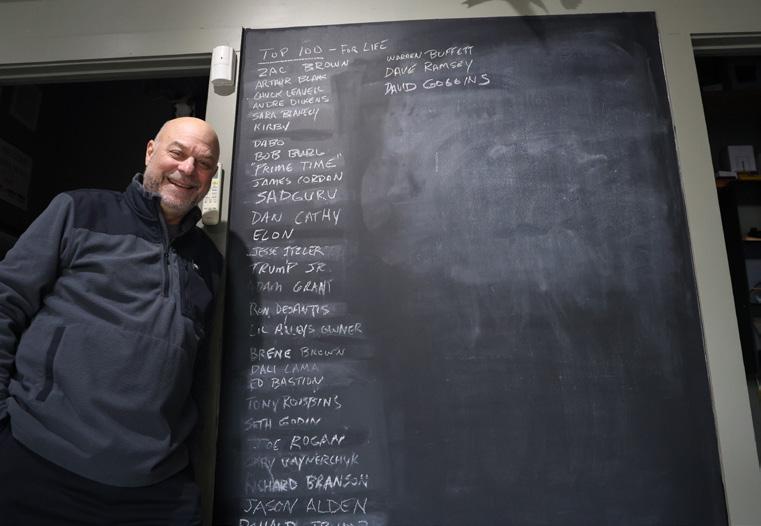 TOP 100 - FOR LIFE
ZAC BROWN
ARTHUR BLANK
CHUCK LEAVELL
ANDRE DICKENS
SARA BLAKELY
KIRBY
DABO
BOB BURG
"PRIME TIME"
JAMES CORDON
SADGURU
DAN CATHY
ELON
JESSE ITZLER
TRUMP JR.
ADAM GRANT
RON DESANTIS
LIL OWNER
BRENE BROWN
DALI LAMA
ED BASTION
TONY ROBBINS
SETH GODIN
JOE ROGAN
GARY VAYNERCHUK
RICHARD BRANSON
JASON ALDEN
DONALD
WARREN BUFFETT
DAVE RAMSEY
DAVID GOGGINS